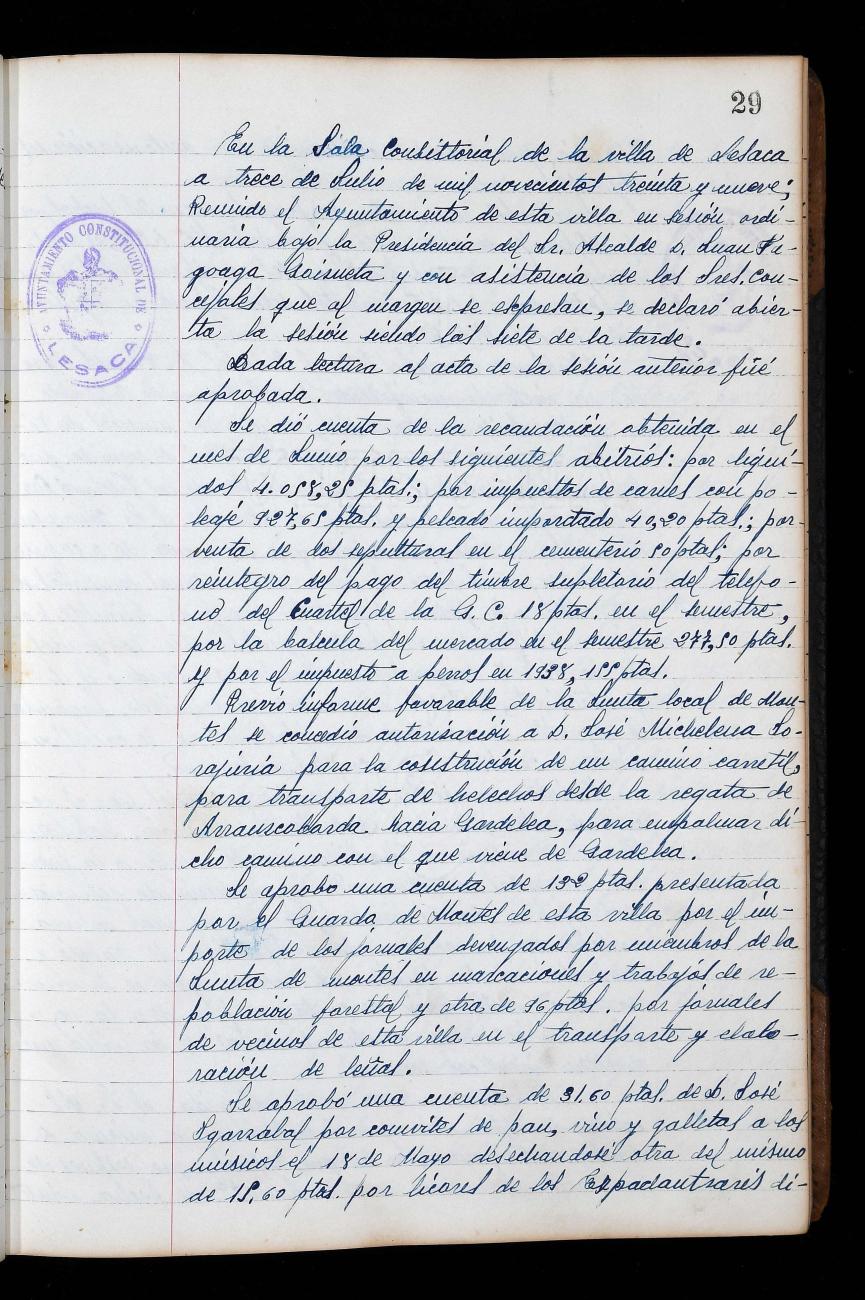 29
En la Sala Consistorial de la villa de Lesaca
a trece de Julio de mil novecientos treinta y nueve;
Reunido el Ayuntamiento de esta villa en sesión ordi-
naria bajó la Presidencia del Sr. Alcalde D. Juan Fa-
goaga Goizueta y con asistencia de los Sres. Con-
cejales que al margen se expresan, se declaró abier-
ta la sesión siendo las siete de la tarde.
Dada lectura al acta de la sesión anterior fué
aprobada.
Se dió cuenta de la recaudación obtenida en el
mes de Junio por los siguientes abitrios: por liqui-
dos 4.058,25 ptas.; por impuestos de carnes con po-
leaje 927,65 ptas. y pescado importado 40,20 ptas.; por
venta de dos sepulturas en el cementerio 50 ptas; por
reintegro del pago del timbre supletorio del telefo-
no del Cuartel de la G. C. 18 ptas. en el semestre,
por la bascula del mercado en el semestre 277,50 ptas.
y por el impuesto a perros en 1938, 155 ptas.
Previó informe favorable de la Junta local de Mon-
tes se concedió autorisación a D. José Michelena So-
rajuria para la cosistrución de un camino carretil,
para transporte de helechos desde la regata de
hacia Gardelea, para empalmar di-
cho camino con el que viene de Gardelea.
Se aprobo una cuenta de 132 ptas. presentada
por el Guarda de Montes de esta villa por el im-
porte de los jornales devengados por miembros de la
Junta de montes en marcaciones y trabajos de re-
población forestal y otra de 96 ptas. por jornales
de vecinos de esta villa en el transparte y elabo-
ración de leñas.
Se aprobó una cuenta de 31.60 ptas. de D. José
Igarzabal por convites de pan, vino y galletas a los
músicos el 18 de Mayo desechandosé otra del mismo
de 15.60 ptas. por licores de los Ezpadantzaris di-
AYUNTAMIENTO CONSTITUCIONAL DE
LESACA